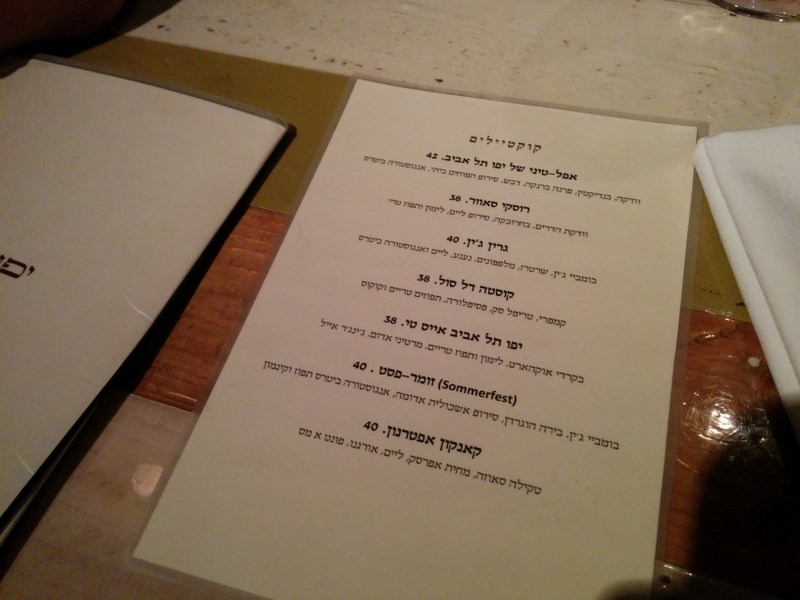 קוקטיילים
אפל–טיני של יפו תל אביב. 42
וודקה, בנדיקטין, פרנה ברנקה, דבש, סירופ תפוחים ביתי, אנגוסטורה ביטרס
רוסקי סאוור. 38
וודקת הדרים, בחרובקה, סירופ ליים, לימון ותפוח טרי
גרין ג'ין. 40
בומביי ג'ין, שרטרז, מלפפונים, נענע, ליים ואנגוסטורה ביטרס
קוסטה דל סול. 38
קמפרי, טריפל סק, פסיפלורה, תפוזים טריים וקוקוס
יפו תל אביב אייס טי. 38
בקרדי אוקהארט, לימון ותפוח טריים, מרטיני אדום, ג'ינג'ר אייל
זומר–פסט (Sommerfest) . 40
בומביי ג'ין, בירה הוגרדן, סירופ אשכולית אדומה, אנגוסטורה ביטרס תפוח וקינמון
קאנקון אפטרנון. 40
טקילה סאוזה, מחית אפרסק, ליים, אורגנו, פונט א מס
יפו